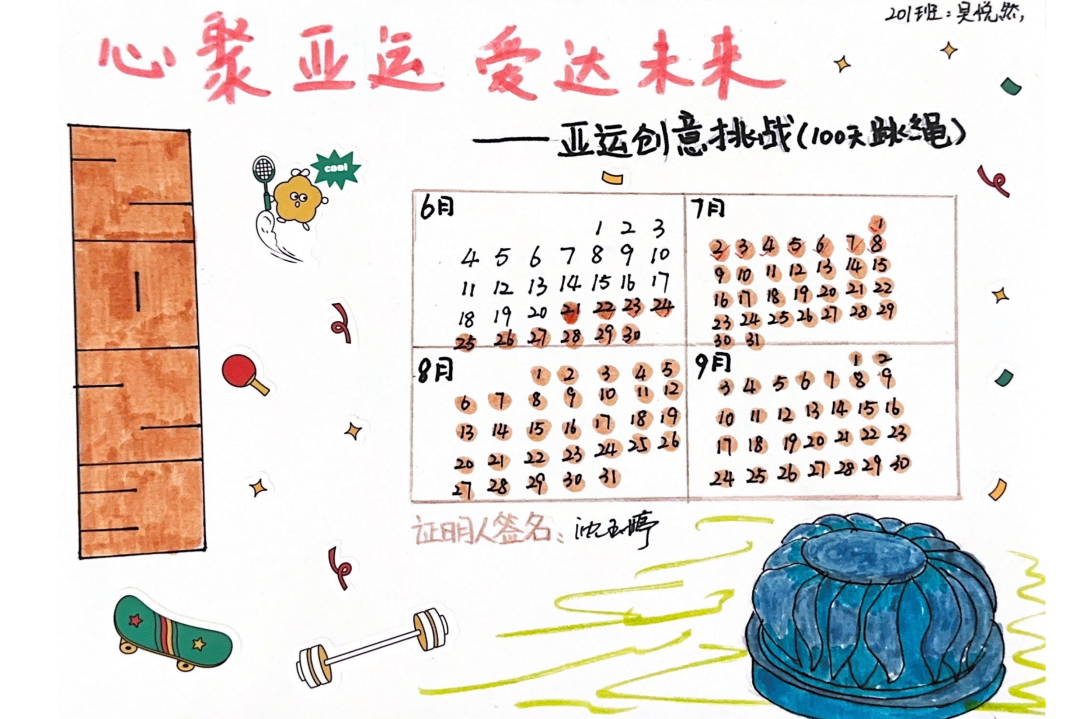 201班:吴悦然,
心聚亚运 爱达未来
——亚运创意挑战(100天跳绳)
cool
6月
1 2 3
4 5 6 7 8 9 10
11 12 13 14 15 16 17
18 19 20 21 22 23 24
25 26 27 28 29 30
7月
1
2 3 4 5 6 7 8
9 10 11 12 13 14 15
16 17 18 19 20 21 22
23 24 25 26 27 28 29
30 31
8月
1 2 3 4 5
6 7 8 9 10 11 12
13 14 15 16 17 18 19
20 21 22 23 24 25 26
27 28 29 30 31
9月
1 2
3 4 5 6 7 8 9
10 11 12 13 14 15 16
17 18 19 20 21 22 23
24 25 26 27 28 29 30
证明人签名:沈玉婷